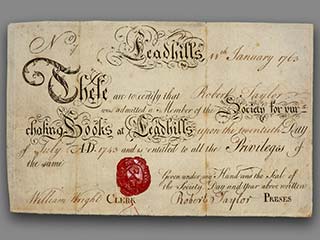 No 7 Leadhills 12th January 1763
These are to certify that Robert Taylor
was admitted a Member of the Society for pur
chasing Books at Leadhills upon the twentieth Day
of July A.D. 1743 and is entitled to all the Privileges of
the same
Given under my Hand and the Seal of
the Society Day and Year above written
William Wright CLERK Robert Taylor PRESES